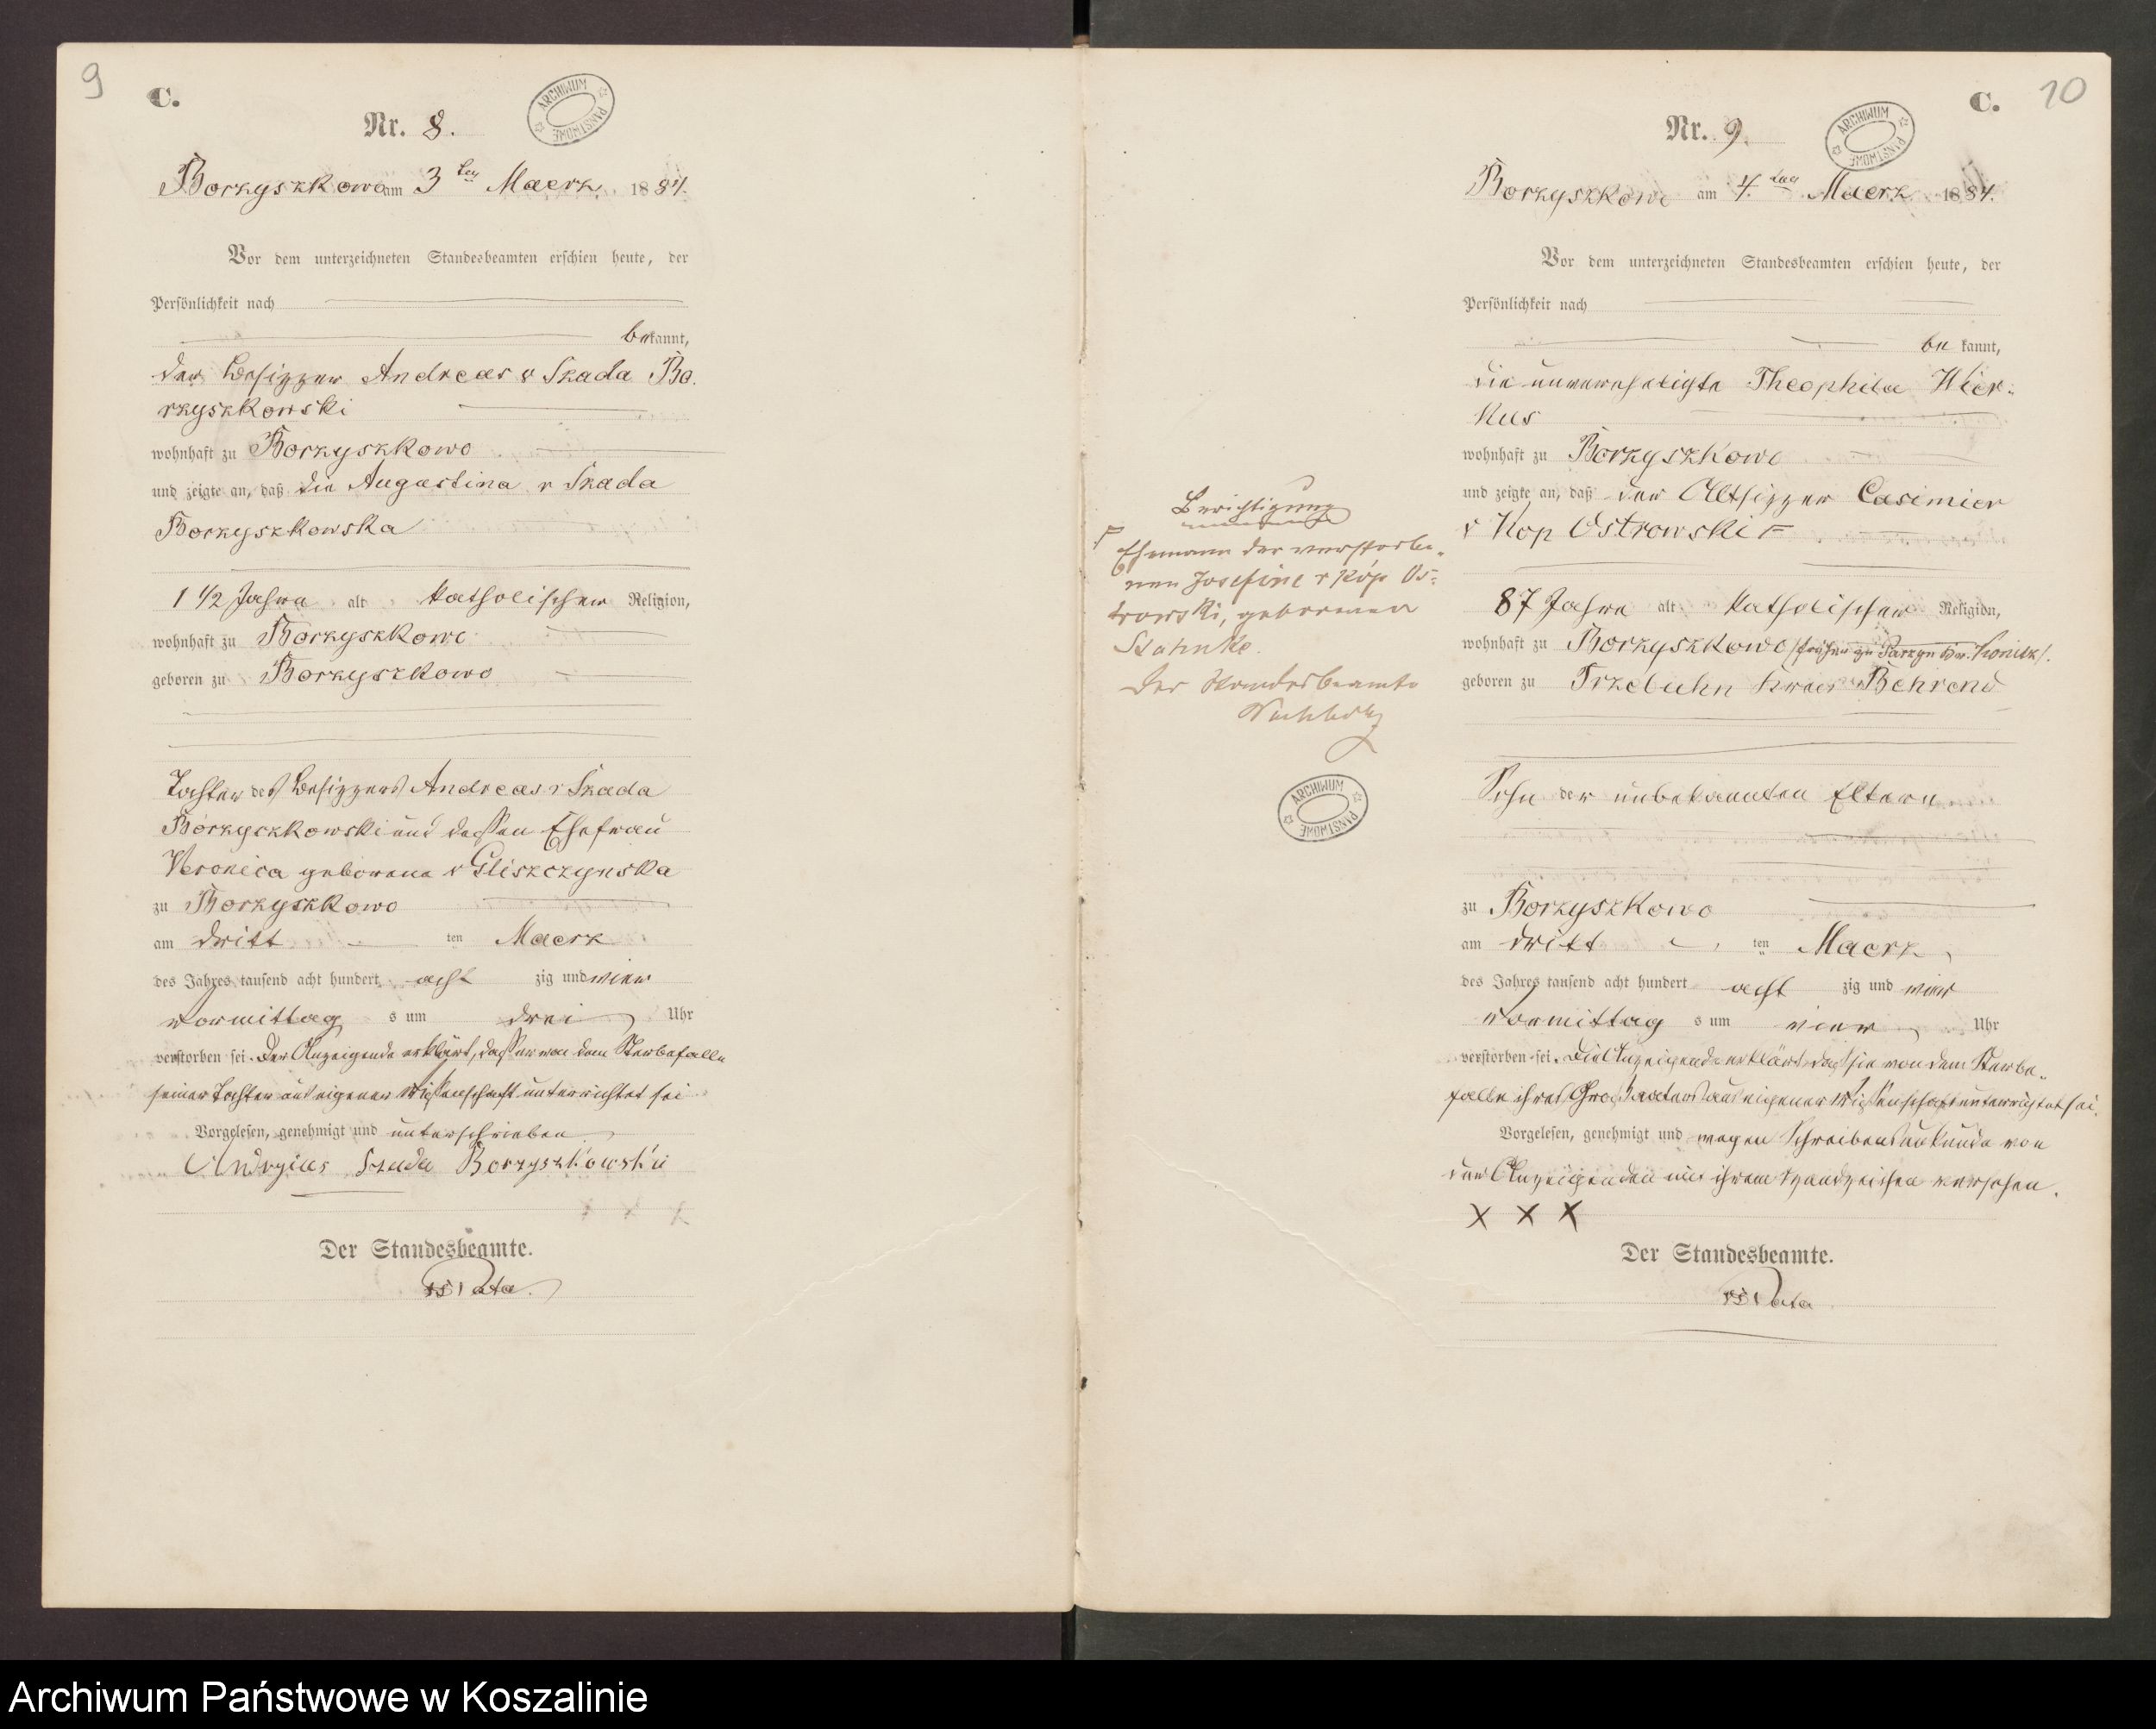 9
C.
ARCHIWUM PAŃSTWOWE
Nr. 8.
Borzyszkowo am 3ten Maerz 1884.
Vor dem unterzeichneten Standesbeamten erschien heute, der
Persönlichkeit nach
bekannt,
der Besitzer Andreas v Skada Bo.
rzyszkowski
wohnhaft zu Borzyszkowo
und zeigte an, daß die Augustina v Skada
Borzyszkowska
1 1/2 Jahre alt katholischer Religion,
wohnhaft zu Borzyszkowo
geboren zu Borzyszkowo
Tochter des Besitzers Andreas v Skada
Borzyszkowski und dessen Ehefrau
Veronica geborene v Gliszczynska
zu Borzyszkowo
am dritt ten Maerz
des Jahres tausend acht hundert acht zig und vier
vormittag s um drei Uhr
verstorben sei. Der Anzeigende erklärt, dass er von dem Sterbefalle
seiner Tochter aus eigener Wissenschaft unterrichtet sei
Vorgelesen, genehmigt und unterschrieben
Andrzias Szada Borzyszkowski
Der Standesbeamte.
10
C.
ARCHIWUM PAŃSTWOWE
Nr. 9.
Borzyszkowo am 4. ten Maerz 1884.
Vor dem unterzeichneten Standesbeamten erschien heute, der
Persönlichkeit nach
be kannt,
die unverehelichte Theophila Wier-
kus
wohnhaft zu Borzyszkowo
und zeigte an, daß der Altsitzer Casimier
v Kop Ostrowski
87 Jahre alt katholischer Religion,
wohnhaft zu Borzyszkowo (früher zu Parzyn Kr. Konitz).
geboren zu Trzebuhn Kreis Behrend
Sohn der unbekannten Eltern
zu Borzyszkowo
am dritt ten Maerz
des Jahres tausend acht hundert acht zig und vier
vormittag s um vier Uhr
verstorben sei. Die Anzeigende erklärt dass sie von dem Sterbe-
falle ihres Grossvaters aus eigener Wissenschaft unterrichtet sei.
Vorgelesen, genehmigt und wegen Schreibensunkunde von
der Anzeigenden mit ihrem Handzeichen versehen.
X X X
Der Standesbeamte.
Berichtigung
Ehemann der verstorbe-
nen Josefine v Kóp Os-
trowski, geborenen
Stahnke.
Der Standesbeamte
ARCHIWUM PAŃSTWOWE
Archiwum Państwowe w Koszalinie